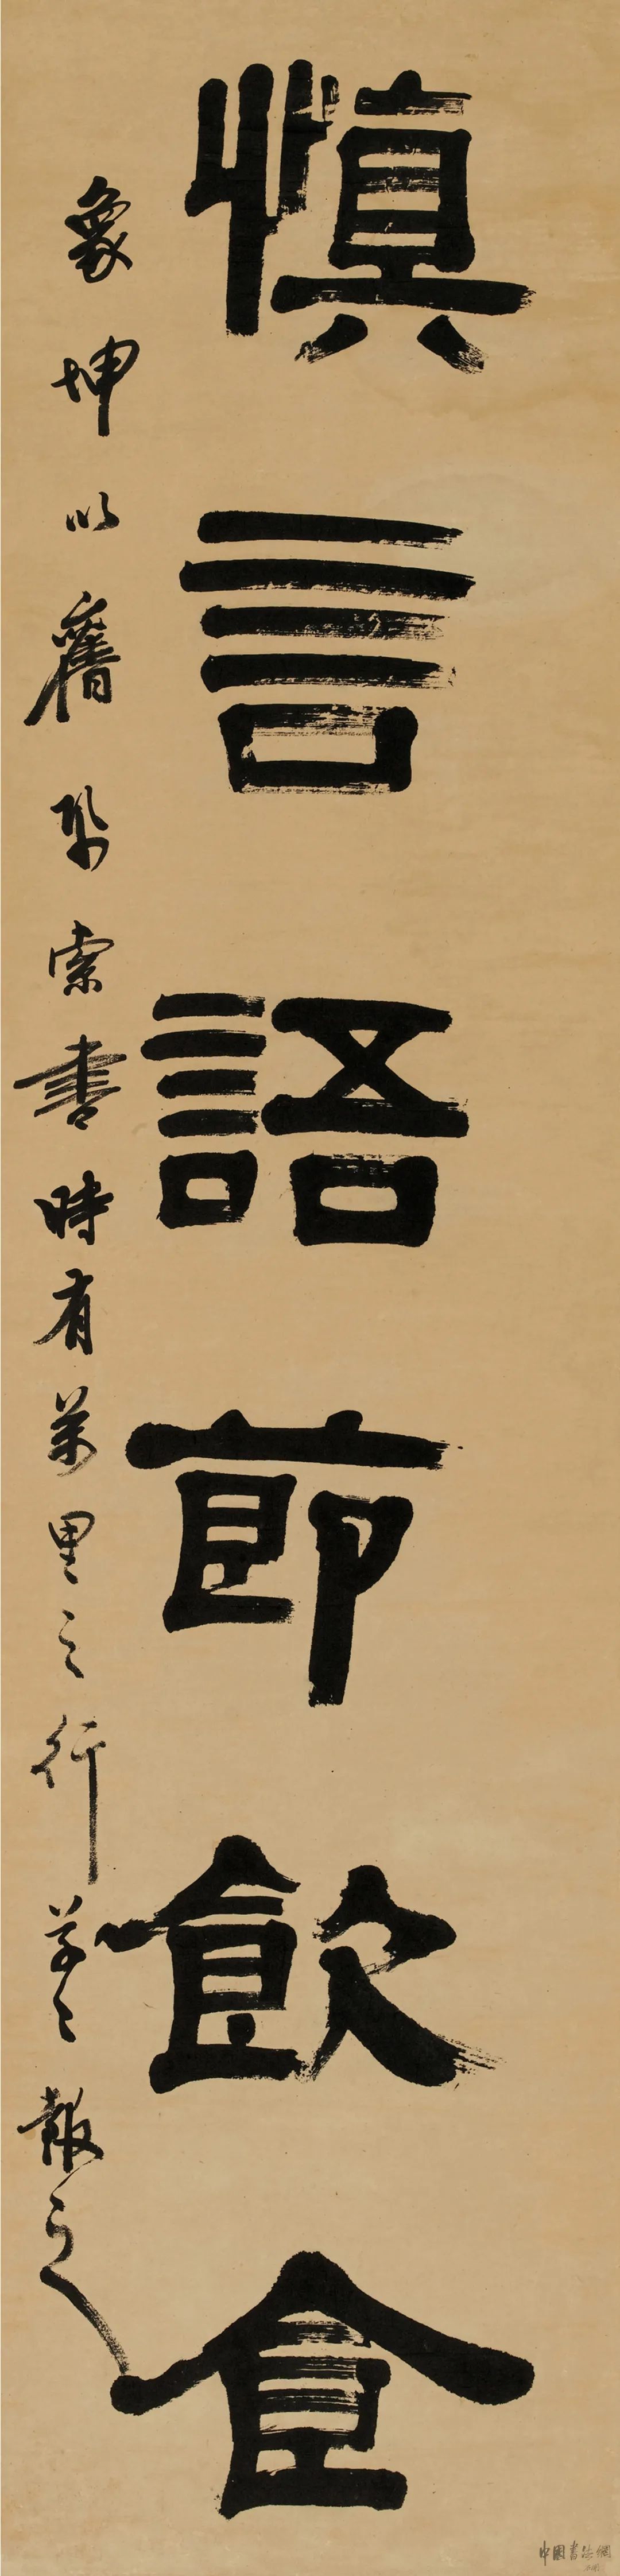 慎言語節飲食
象坤以舊紙索書時有萬里之行草草報之
中國書法網